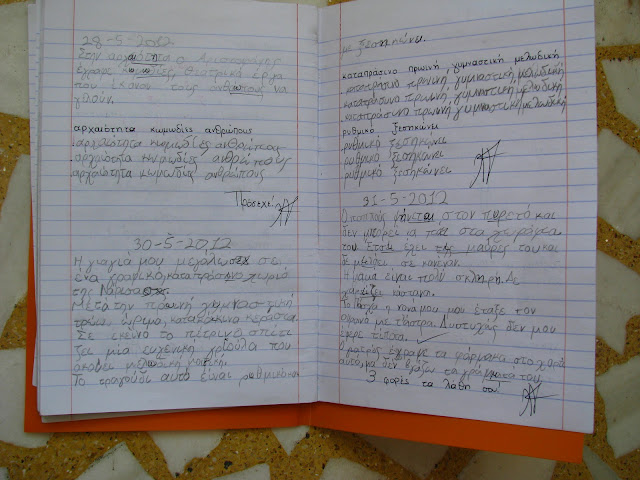 28-5-2012
Στην αρχαιότητα ο Αριστοφάνης
έγραψε κωμωδίες, θεατρικά έργα
που έκαναν τους ανθρώπους να
γελούν.
αρχαιότητα κωμωδίες ανθρώπους
αρχαιότητα κωμωδίες ανθρώπους
αρχαιότητα κωμωδίες ανθρώπους
αρχαιότητα κωμωδίες ανθρώπους
Πρόσεχε!
30-5-2012
Η γιαγιά μου μεγάλωσε σε
ένα γραφικό, καταπράσινο χωριό
της
Μετά την πρωινή γυμναστική
ώριμα, κατακόκκινα κεράσια.
Σε εκείνο το πέτρινο σπίτι
ζει μία ευγενική γριούλα που
ακούει μελωδική μουσική.
Το τραγούδι αυτό είναι ρυθμικό και
με ξεσηκώνει.
καταπράσινο πρωινή γυμναστική μελωδική
καταπράσινο πρωινή γυμναστική μελωδική
καταπράσινο πρωινή γυμναστική μελωδική
καταπράσινο πρωινή γυμναστική μελωδική
ρυθμικό ξεσηκώνει
ρυθμικό ξεσηκώνει
ρυθμικό ξεσηκώνει
ρυθμικό ξεσηκώνει
31-5-2012
Ο παππούς ψήνεται στον πυρετό και
δεν μπορεί να πάει στα χωράφια
του. Έτσι έχει τις μαύρες του και
δε μιλάει σε κανέναν.
Η μαμά είναι πολύ σκληρή. Δε
χαρίζει κάστανα.
Το Πάσχα η νονά μου μου έταξε τον
ουρανό με τ'άστρα. Δυστυχώς δεν μου
έφερε τίποτα.
Ο γιατρός έγραψε τα φάρμακα στο χαρτί
αυτό, μα δεν βγάζω τα γράμματά του.
3 φορές τα λάθη σου!